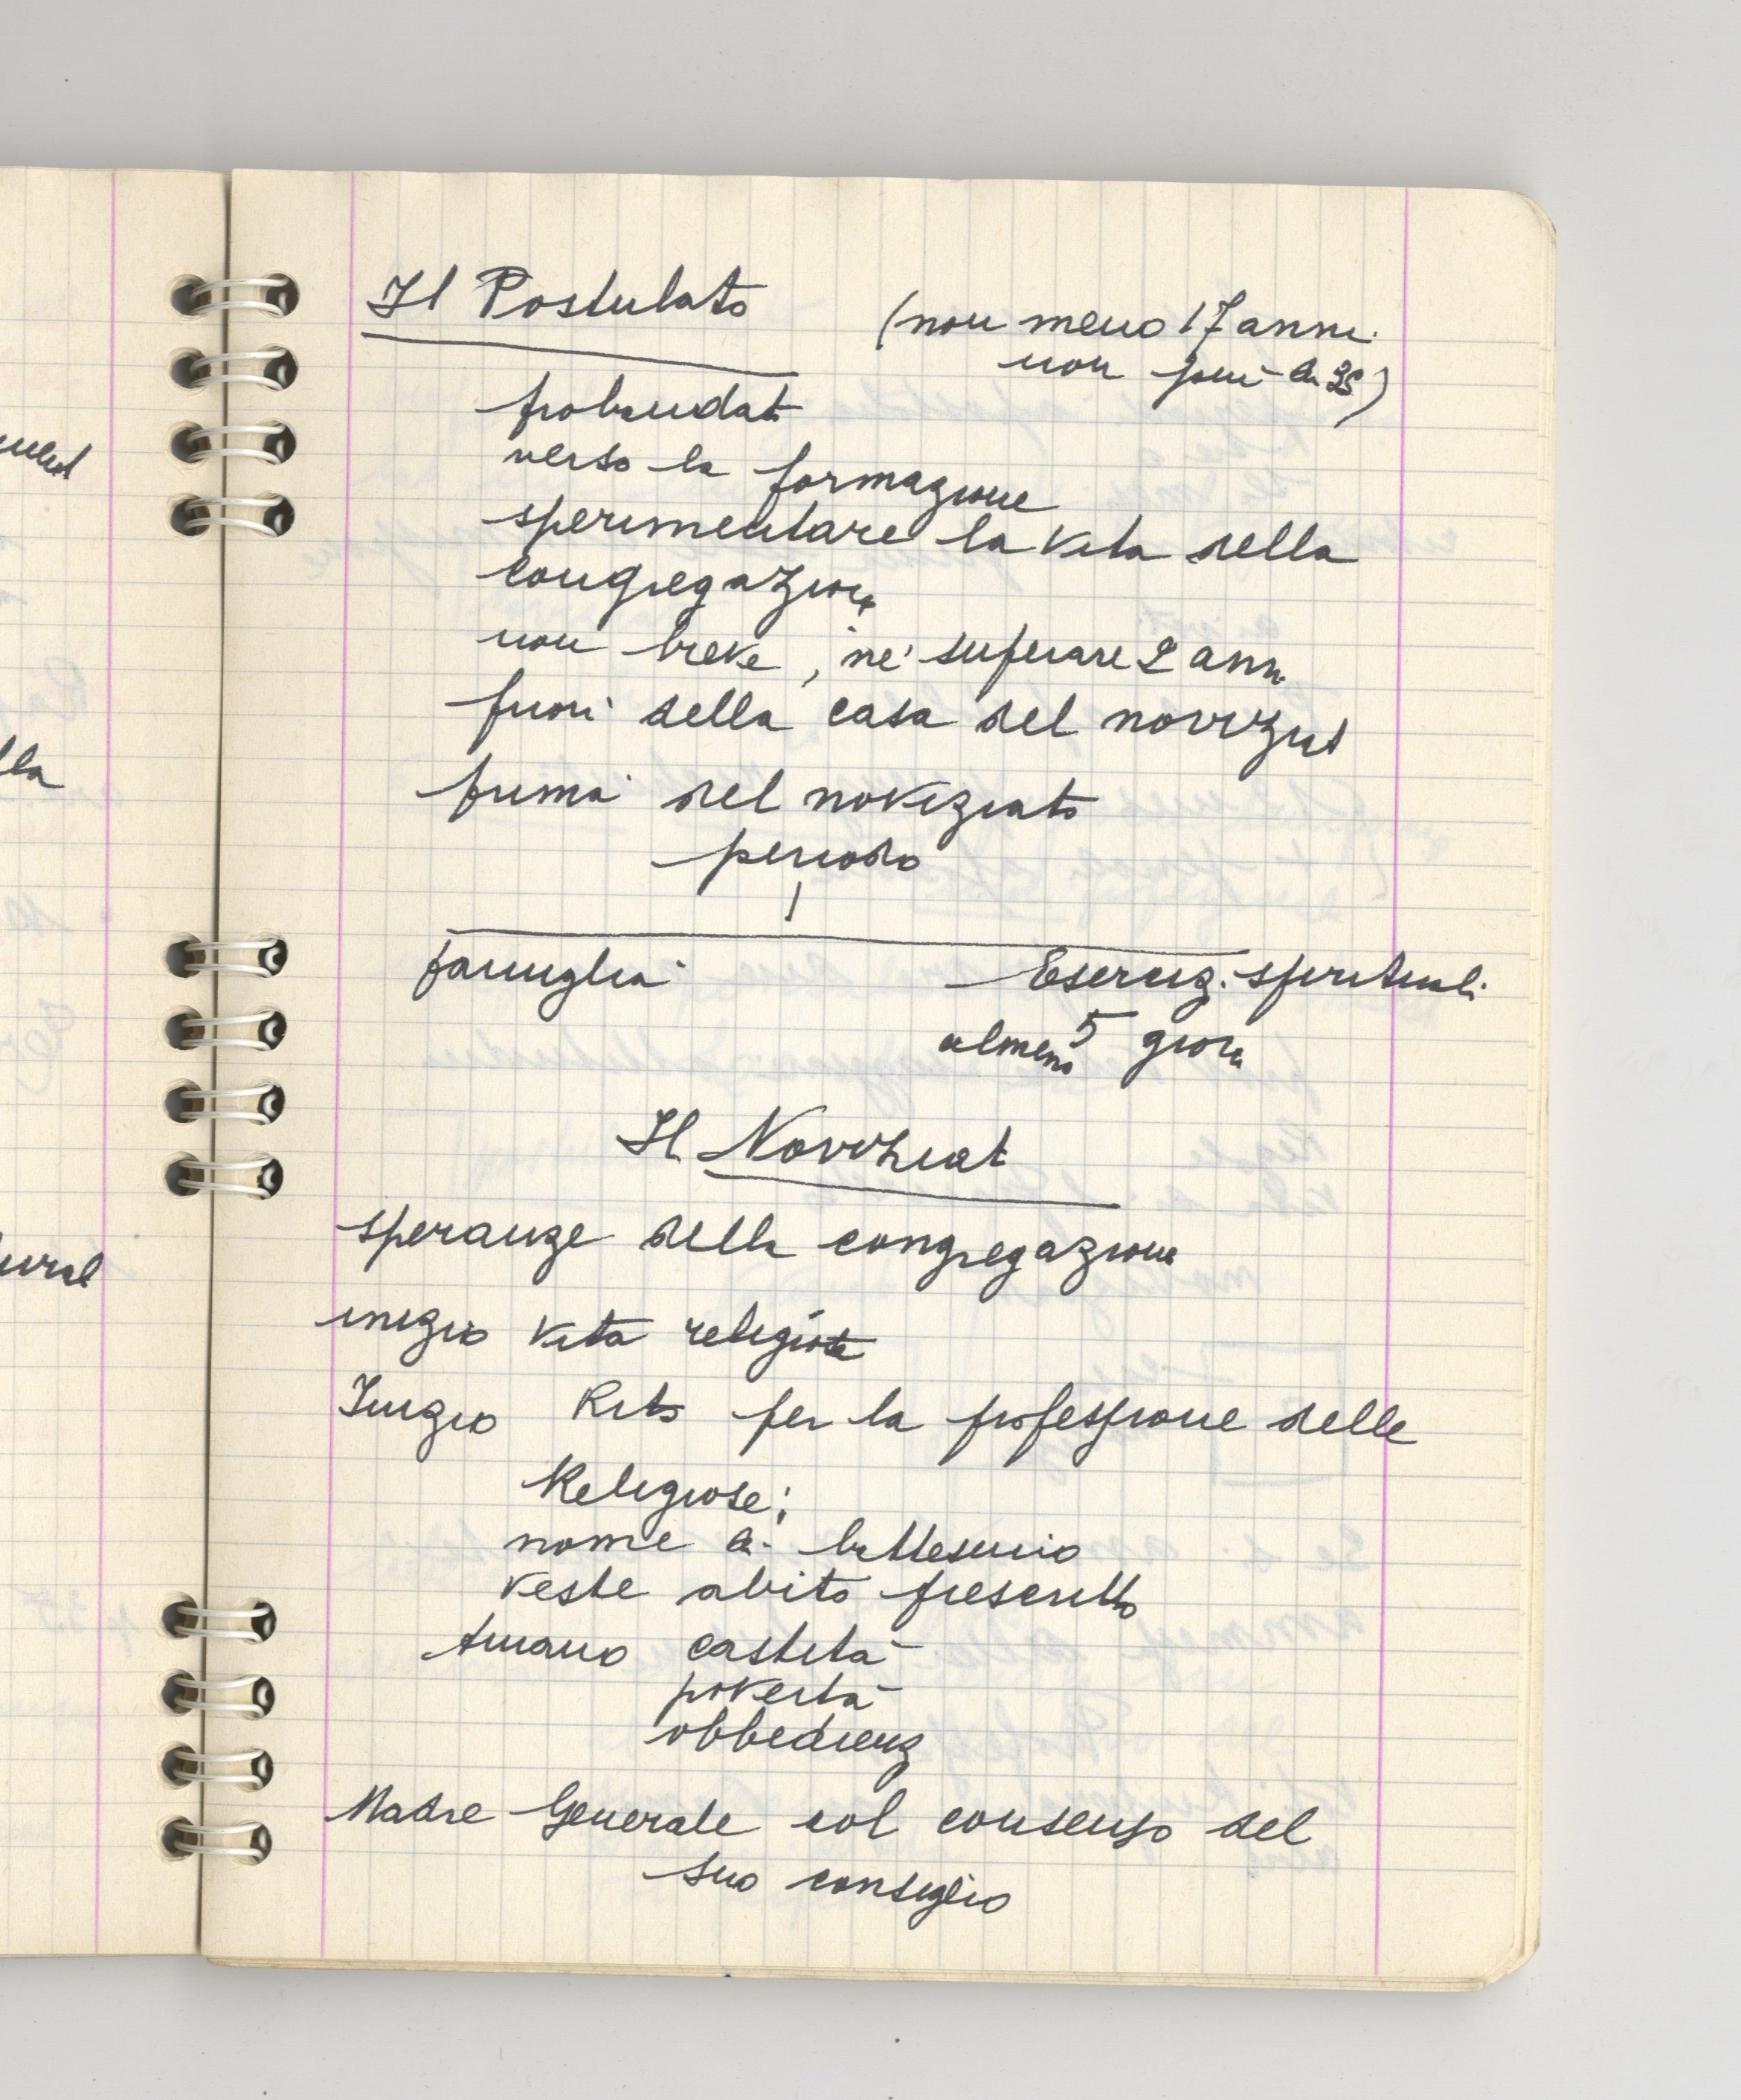 Il Postulato
(non meno 17 anni
non più di 35)
probandat
verso la formazione
sperimentare la vita della
congregazione
non breve, nè superare 2 anni
fuori della casa del noviziat
prima del noviziato
periodo
famiglia
Eserciz. spirituali
almeno 5 giorni
Il Noviziat
speranze della congregazione
inizio vita religiosa
Inizio Rito per la professione delle
Religiose;
nome di battesimo
veste abito prescritto
castità
povertà
obbedienz
Madre Generale col consenso del
suo consiglio
lla